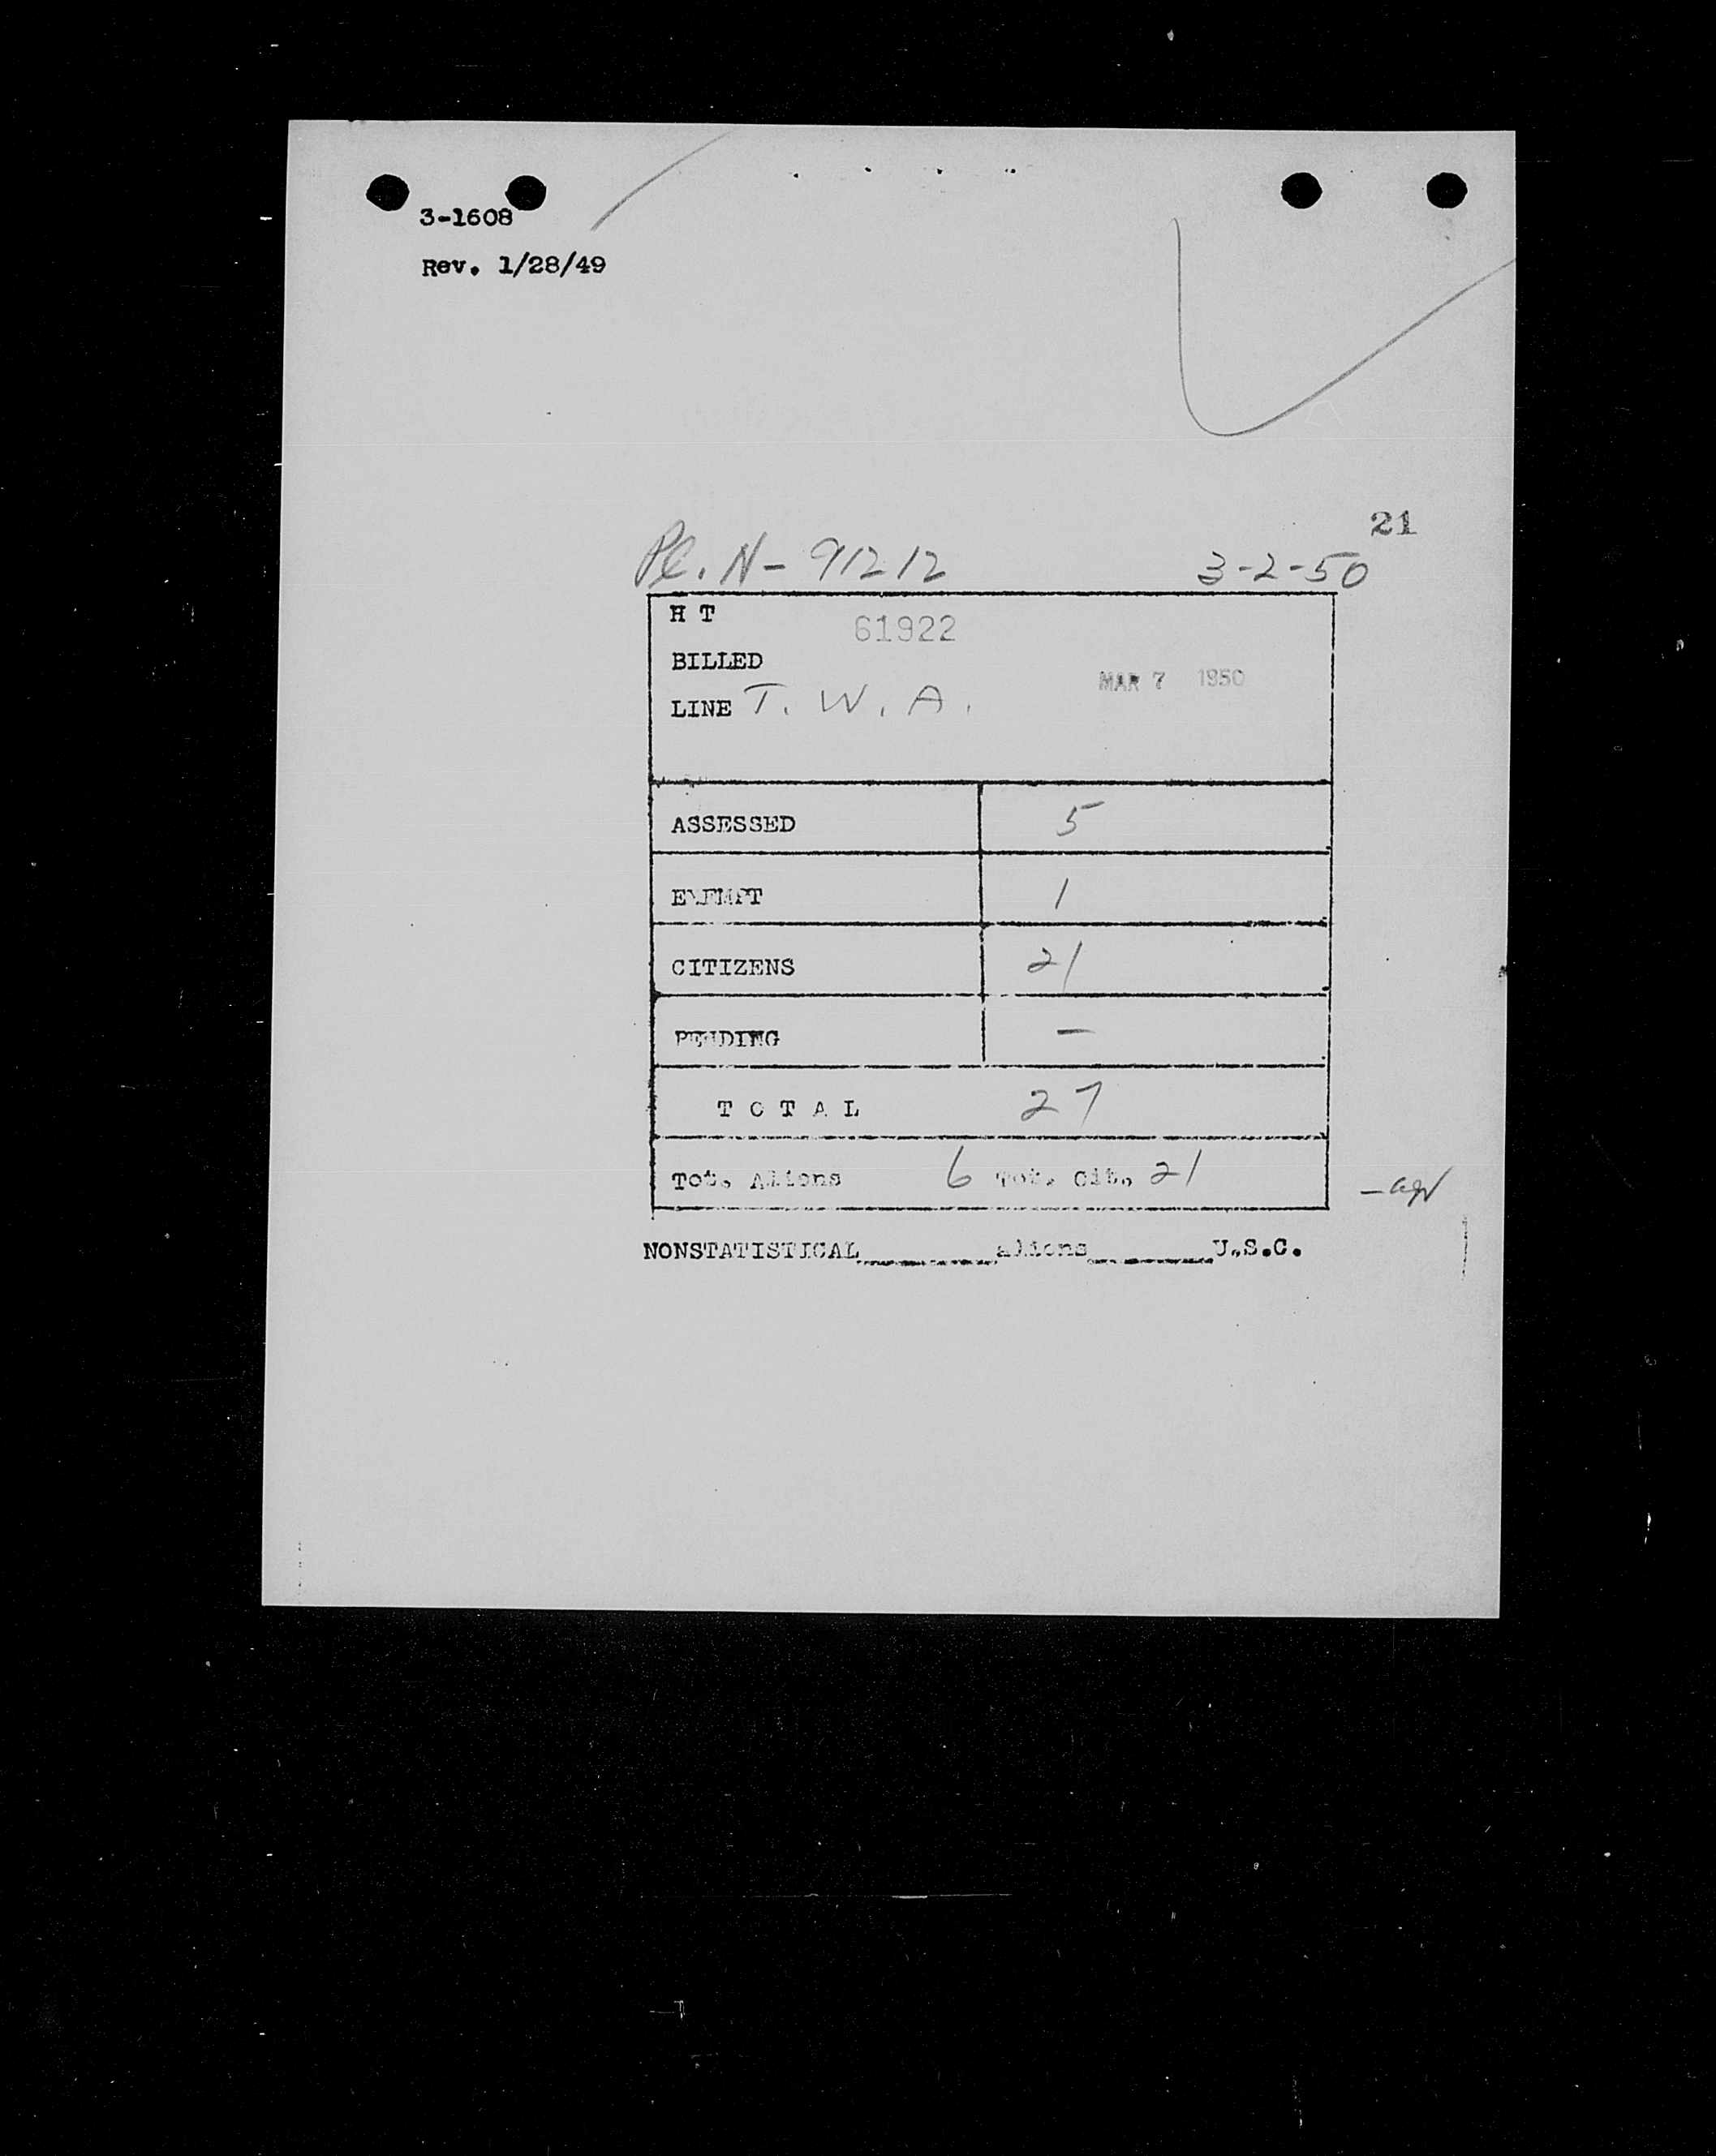 3-1608
Rev. 1/28/49
21
Pl. N- 91212 3-2-50
H T 61922
BILLED
MAR 7 1950
LINE T. W. A.
ASSESSED 5
EXEMPT 1
CITIZENS 21
PENDING -
T O T A L 27
Tot. Aliens 6 Tot. Cit. 21
NONSTATISTICAL________aliens________U.S.C.